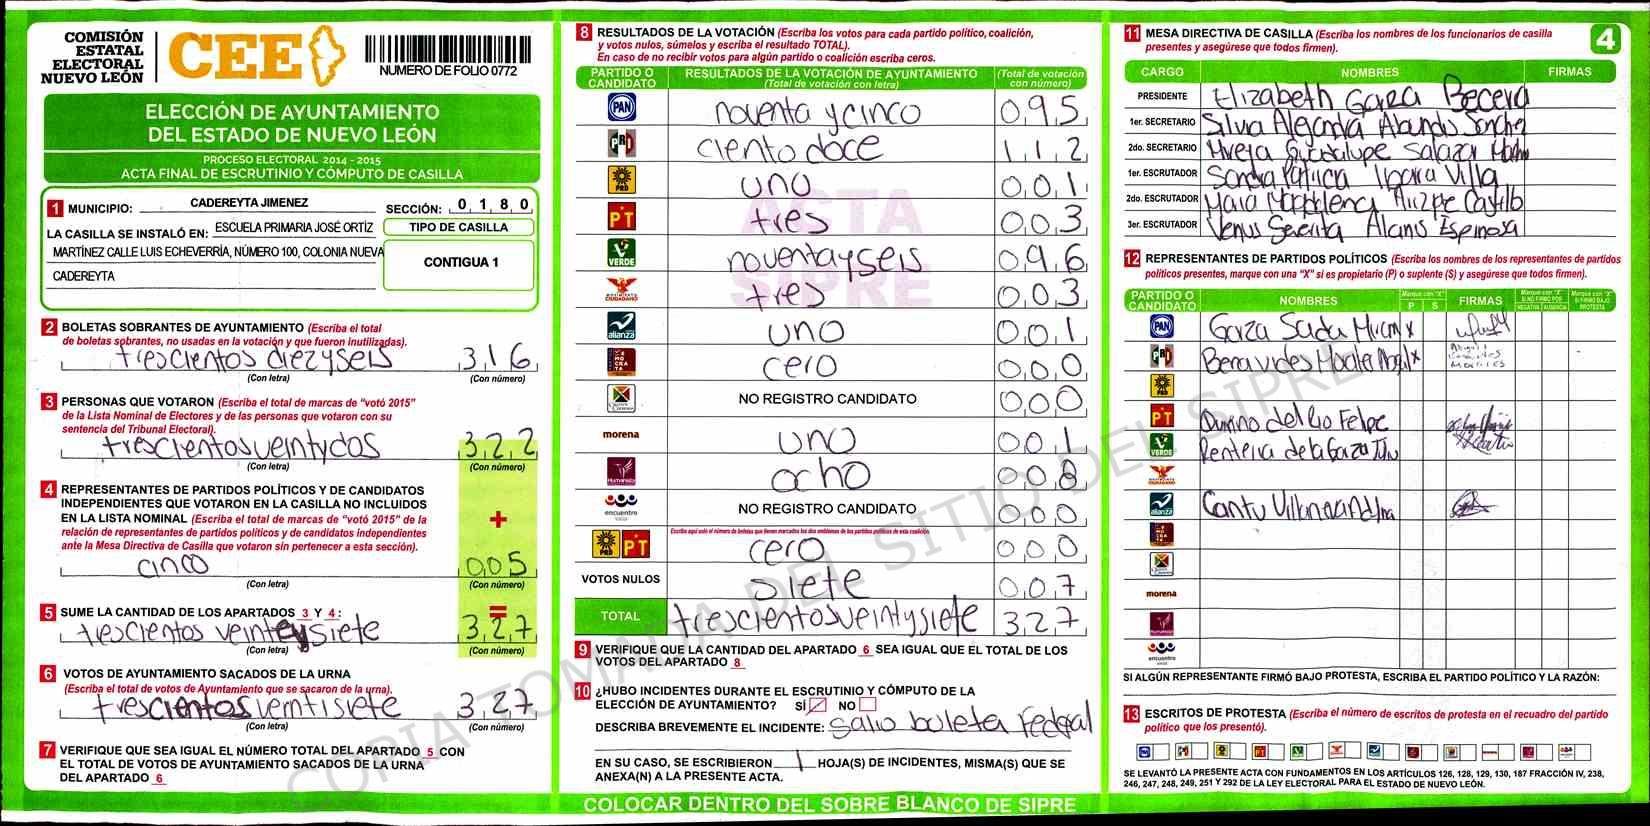 COMISIÓN
ESTATAL
ELECTORAL
NUEVO LEÓN
CEE
NUMERO DE FOLIO 0772
ELECCIÓN DE AYUNTAMIENTO
DEL ESTADO DE NUEVO LEÓN
PROCESO ELECTORAL 2014 - 2015
ACTA FINAL DE ESCRUTINIO Y CÓMPUTO DE CASILLA
1 MUNICIPIO: CADEREYTA JIMENEZ SECCIÓN: 0180
LA CASILLA SE INSTALÓ EN: ESCUELA PRIMARIA JOSÉ ORTÍZ
MARTÍNEZ CALLE LUIS ECHEVERRÍA, NÚMERO 100, COLONIA NUEVA
CADEREYTA
TIPO DE CASILLA
CONTIGUA 1
2 BOLETAS SOBRANTES DE AYUNTAMIENTO (Escriba el total
de boletas sobrantes, no usadas en la votación y que fueron inutilizadas).
trescientos diezyseis 316
(Con letra) (Con número)
3 PERSONAS QUE VOTARON (Escriba el total de marcas de “votó 2015”
de la Lista Nominal de Electores y de las personas que votaron con su
sentencia del Tribunal Electoral).
trescientosveintydos 322
(Con letra) (Con número)
4 REPRESENTANTES DE PARTIDOS POLÍTICOS Y DE CANDIDATOS
INDEPENDIENTES QUE VOTARON EN LA CASILLA NO INCLUIDOS
EN LA LISTA NOMINAL (Escriba el total de marcas de “votó 2015” de la
relación de representantes de partidos políticos y de candidatos independientes
ante la Mesa Directiva de Casilla que votaron sin pertenecer a esta sección).
+
cinco 005
(Con letra) (Con número)
5 SUME LA CANTIDAD DE LOS APARTADOS 3 Y 4: =
trescientos veinteysiete 327
(Con letra) (Con número)
6 VOTOS DE AYUNTAMIENTO SACADOS DE LA URNA
(Escriba el total de votos de Ayuntamiento que se sacaron de la urna).
trescientosveintisiete 327
(Con letra) (Con número)
7 VERIFIQUE QUE SEA IGUAL EL NÚMERO TOTAL DEL APARTADO 5 CON
EL TOTAL DE VOTOS DE AYUNTAMIENTO SACADOS DE LA URNA
DEL APARTADO 6
8 RESULTADOS DE LA VOTACIÓN (Escriba los votos para cada partido político, coalición,
y votos nulos, súmelos y escriba el resultado TOTAL).
En caso de no recibir votos para algún partido o coalición escriba ceros.
PARTIDO O CANDIDATO
RESULTADOS DE LA VOTACIÓN DE AYUNTAMIENTO
(Total de votación con letra)
(Total de votación con número)
PAN noventa y cinco 095
PRI ciento doce 112
PRD uno 001
PT tres 003
VERDE noventayseis 096
CIUDADANO tres 003
alianza uno 001
cero 000
NO REGISTRO CANDIDATO 000
morena uno 001
Humanista ocho 008
encuentro social NO REGISTRO CANDIDATO 000
Escriba aquí solo el número de boletas que tienen marcados los dos emblemas de los partidos políticos de esta coalición
PRD PT cero 000
VOTOS NULOS siete 007
TOTAL trescientosveintysiete 327
ACTA
SIPRE
9 VERIFIQUE QUE LA CANTIDAD DEL APARTADO 6 SEA IGUAL QUE EL TOTAL DE LOS
VOTOS DEL APARTADO 8
10 ¿HUBO INCIDENTES DURANTE EL ESCRUTINIO Y CÓMPUTO DE LA
ELECCIÓN DE AYUNTAMIENTO? SÍ NO
DESCRIBA BREVEMENTE EL INCIDENTE: salio boleta Federal
EN SU CASO, SE ESCRIBIERON 1 HOJA(S) DE INCIDENTES, MISMA(S) QUE SE
ANEXA(N) A LA PRESENTE ACTA.
COLOCAR DENTRO DEL SOBRE BLANCO DE SIPRE
11 MESA DIRECTIVA DE CASILLA (Escriba los nombres de los funcionarios de casilla
presentes y asegúrese que todos firmen).
4
CARGO NOMBRES FIRMAS
PRESIDENTE Elizabeth Garza Becerra
1er. SECRETARIO Silvia Alejandra
2do. SECRETARIO Mireya Guadalupe Salazar
1er. ESCRUTADOR Sandra Patricia Ibarra Villa
2do. ESCRUTADOR Maria Magdalena Arizpe Castillo
3er. ESCRUTADOR Venus Alanis Espinosa
12 REPRESENTANTES DE PARTIDOS POLÍTICOS (Escriba los nombres de los representantes de partidos
políticos presentes, marque con una “X” si es propietario (P) o suplente (S) y asegúrese que todos firmen).
PARTIDO O CANDIDATO NOMBRES Marque con "X" P S FIRMAS Marque con "X" SI NO FIRMÓ POR NEGATIVA AUSENCIA Marque con "X" SI FIRMÓ BAJO PROTESTA
PAN Garza Sada x
PRI x
PRD
PT del Rio Felipe
VERDE Renteria de la Garza
CIUDADANO
alianza Cantu
morena
Humanista
encuentro social
SI ALGÚN REPRESENTANTE FIRMÓ BAJO PROTESTA, ESCRIBA EL PARTIDO POLÍTICO Y LA RAZÓN:
13 ESCRITOS DE PROTESTA (Escriba el número de escritos de protesta en el recuadro del partido
político que los presentó).
SE LEVANTÓ LA PRESENTE ACTA CON FUNDAMENTOS EN LOS ARTÍCULOS 126, 128, 129, 130, 187 FRACCIÓN IV, 238,
246, 247, 248, 249, 251 Y 292 DE LA LEY ELECTORAL PARA EL ESTADO DE NUEVO LEÓN.
COPIA TOMADA DEL SITIO DEL SIPRE